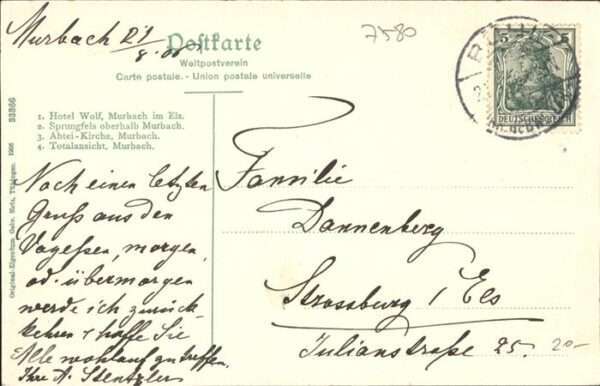 Murbach 21/8.06
7580
Postkarte
Weltpostverein
Carte postale. - Union postale universelle
5 5
DEUTSCHES REICH
1. Hotel Wolf, Murbach im Els.
2. Sprungfels oberhalb Murbach.
3. Abtei-Kirche, Murbach.
4. Totalansicht, Murbach.
Original-Eigentum Gebr. Metz, Tübingen. 1906 33366
Noch einen letzten
Gruß aus den
Vogesen, morgen
od. übermorgen
werde ich zurück-
kehren & hoffe Sie
Alle wohlauf zu treffen.
Ihre A. Stentzler
Familie
Dannenberg
Strassburg i/Els
Julianstraße 25.
20-